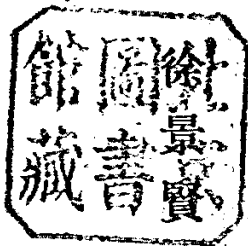 徐景賢
圖書
館藏